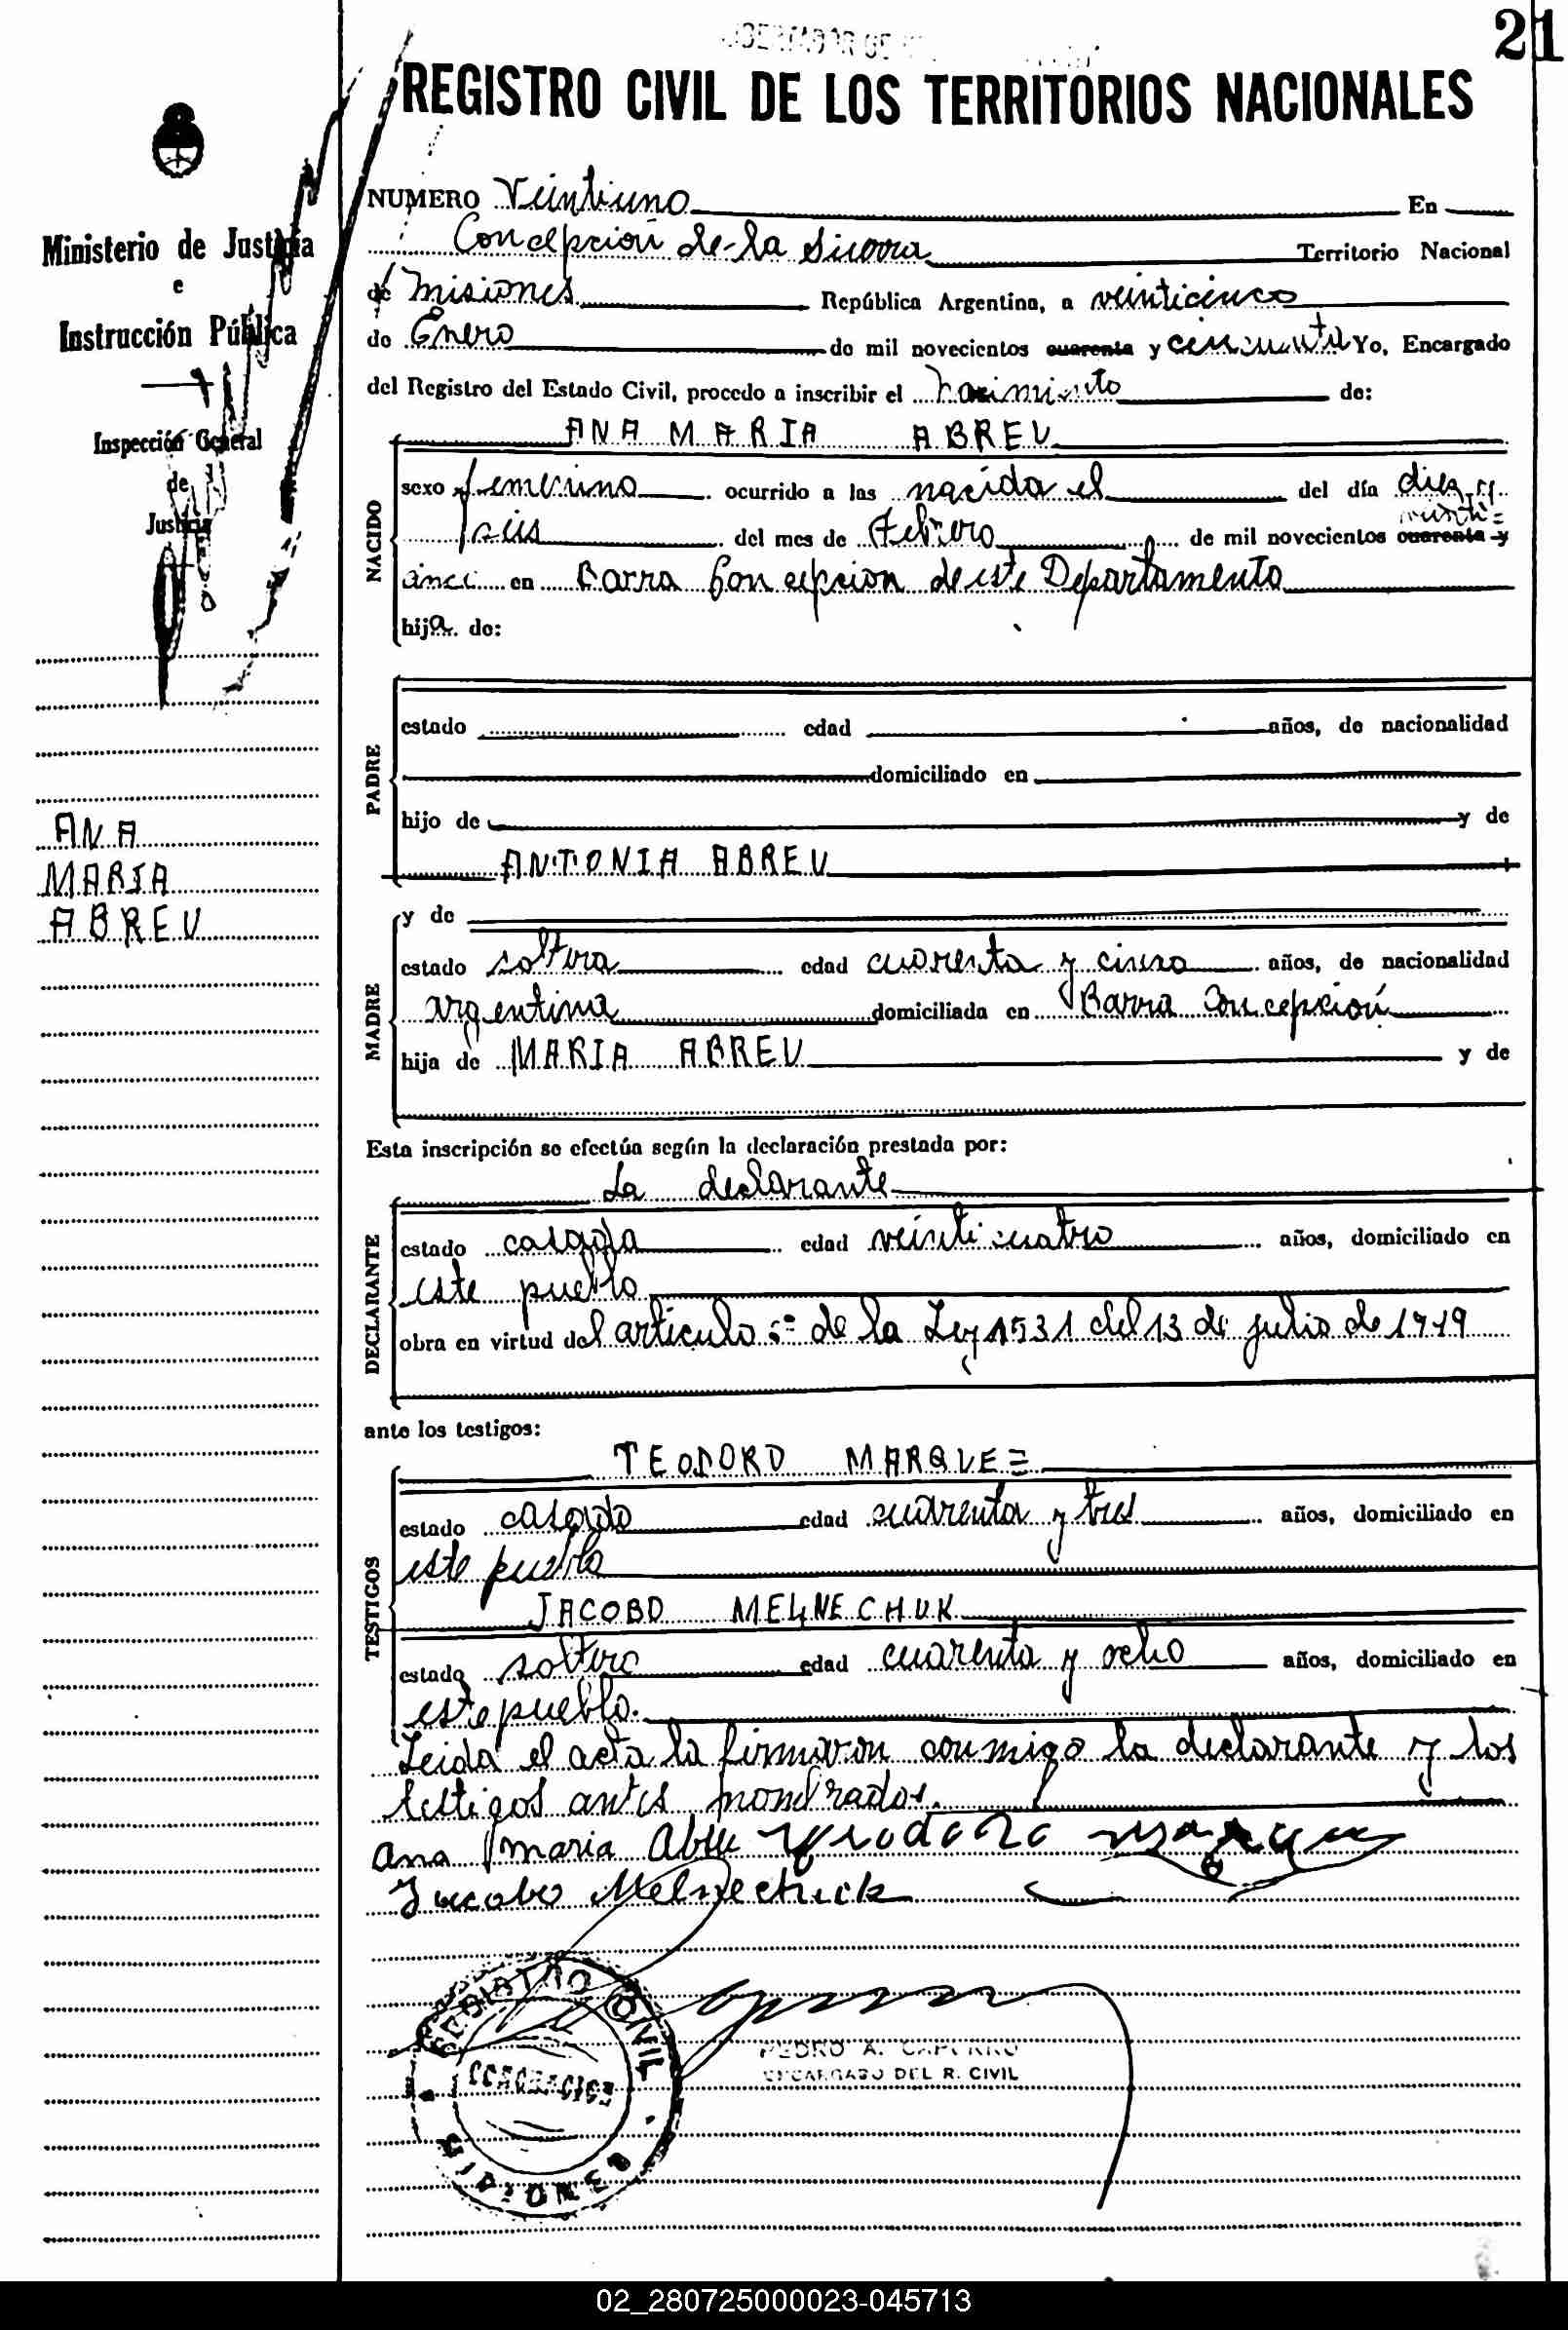 21
REGISTRO CIVIL DE LOS TERRITORIOS NACIONALES
Ministerio de Justicia
e
Instrucción Pública
Inspección General
de
Justicia
ANA
MARIA
ABREU
NUMERO Veintiuno En
Concepción de la Sierra Territorio Nacional
de Misiones República Argentina, a veinticinco
de Enero de mil novecientos cuarenta y cincuenta Yo, Encargado
del Registro del Estado Civil, procedo a inscribir el nacimiento de:
ANA MARIA ABREU
NACIDO
sexo femenino ocurrido a las nacida el del día diez y
seis del mes de Febrero de mil novecientos cuarenta y veinti=
cinco en Barra Concepcion de este Departamento
hija de:
PADRE
estado edad años, de nacionalidad
domiciliado en
hijo de y de
ANTONIA ABREU
MADRE
y de
estado soltera edad cuarenta y cinco años, de nacionalidad
argentina domiciliada en Barra Concepción
hija de MARIA ABREU y de
Esta inscripción se efectúa según la declaración prestada por:
La declarante
DECLARANTE
estado casada edad veinticuatro años, domiciliado en
este pueblo
obra en virtud del articulo de la Ley 1531 del 13 de julio de 1949
ante los testigos:
TEODORO MARQUEZ
TESTIGOS
estado casado edad cuarenta y tres años, domiciliado en
este pueblo
JACOBO MELNECHUK
estado soltero edad cuarenta y ocho años, domiciliado en
este pueblo.
Leida el acta la firmaron conmigo la declarante y los
testigos antes nombrados.
Ana maria Abreu Teodoro Marquez
Jacobo Melnechuk
REGISTRO CIVIL
PEDRO A. CAPURRO
ENCARGADO DEL R. CIVIL
02_280725000023-045713